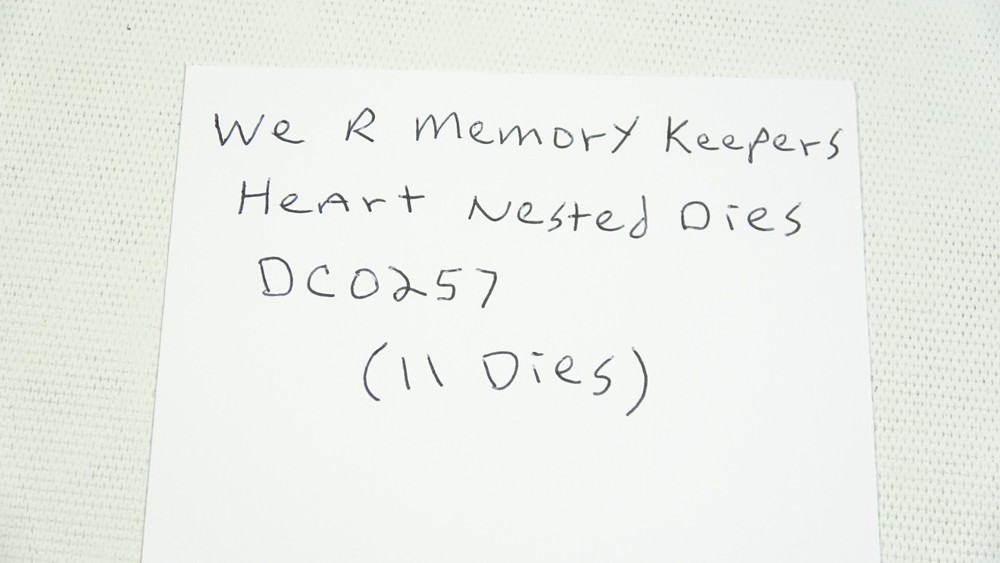 We R Memory Keepers
Heart Nested Dies
DC0257
(11 Dies)